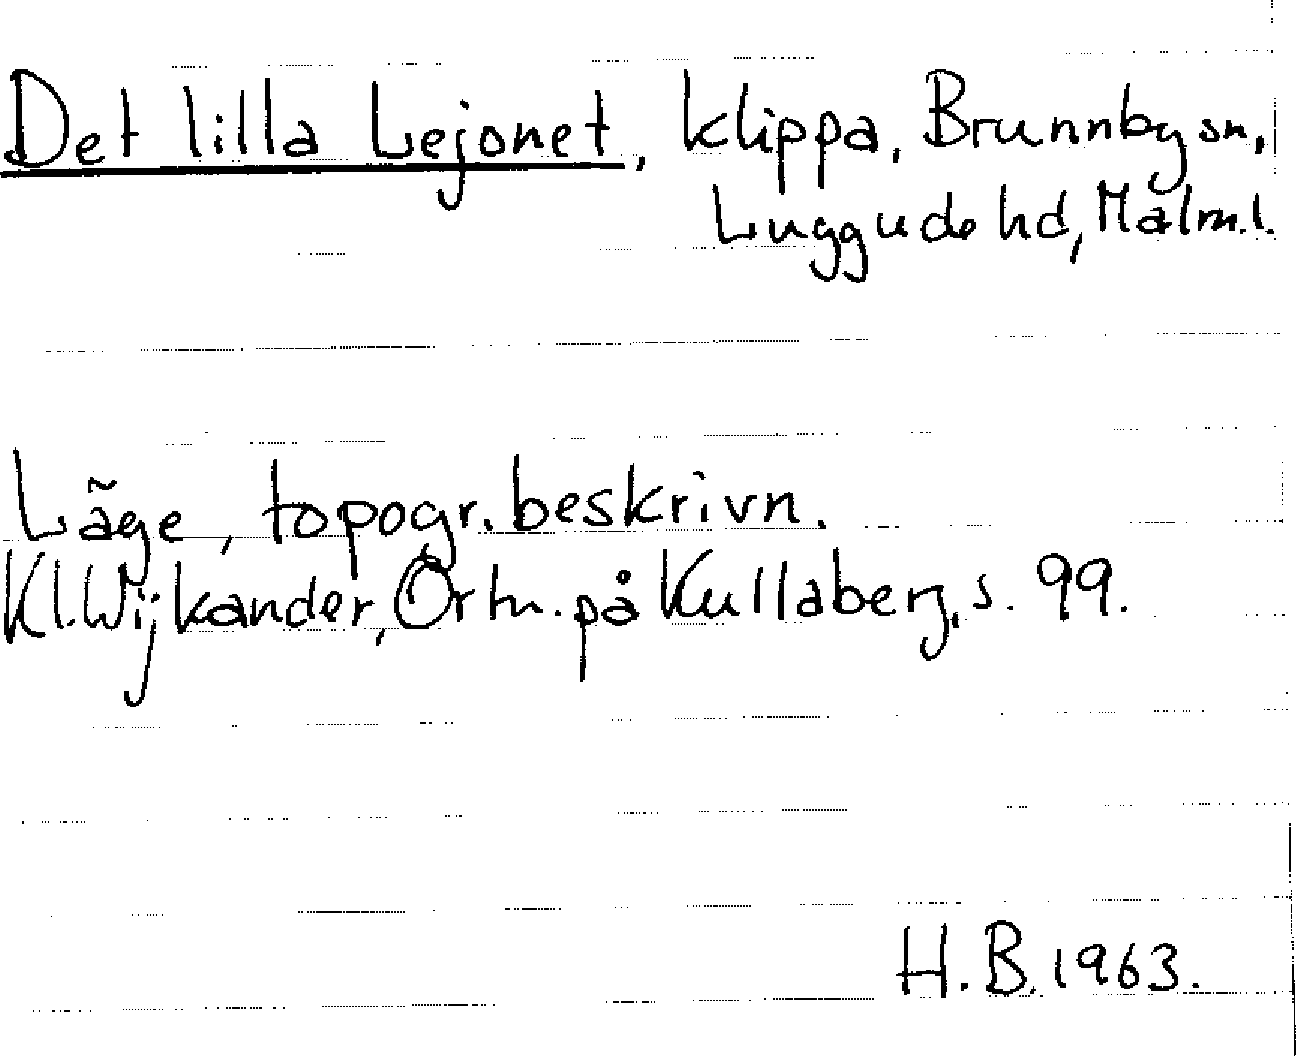 Det lilla Lejonet, klippa, Brunnby sn,
Luggude hd, Malm.l.
Läge, topogr. beskrivn.
Kl. Wijkander, Ortn. på Kullaberg, s. 99.
H.B. 1963.